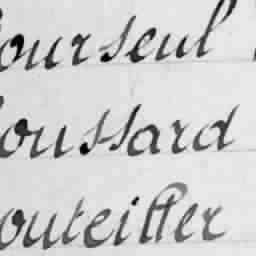 ourseul
oussard
outeiller